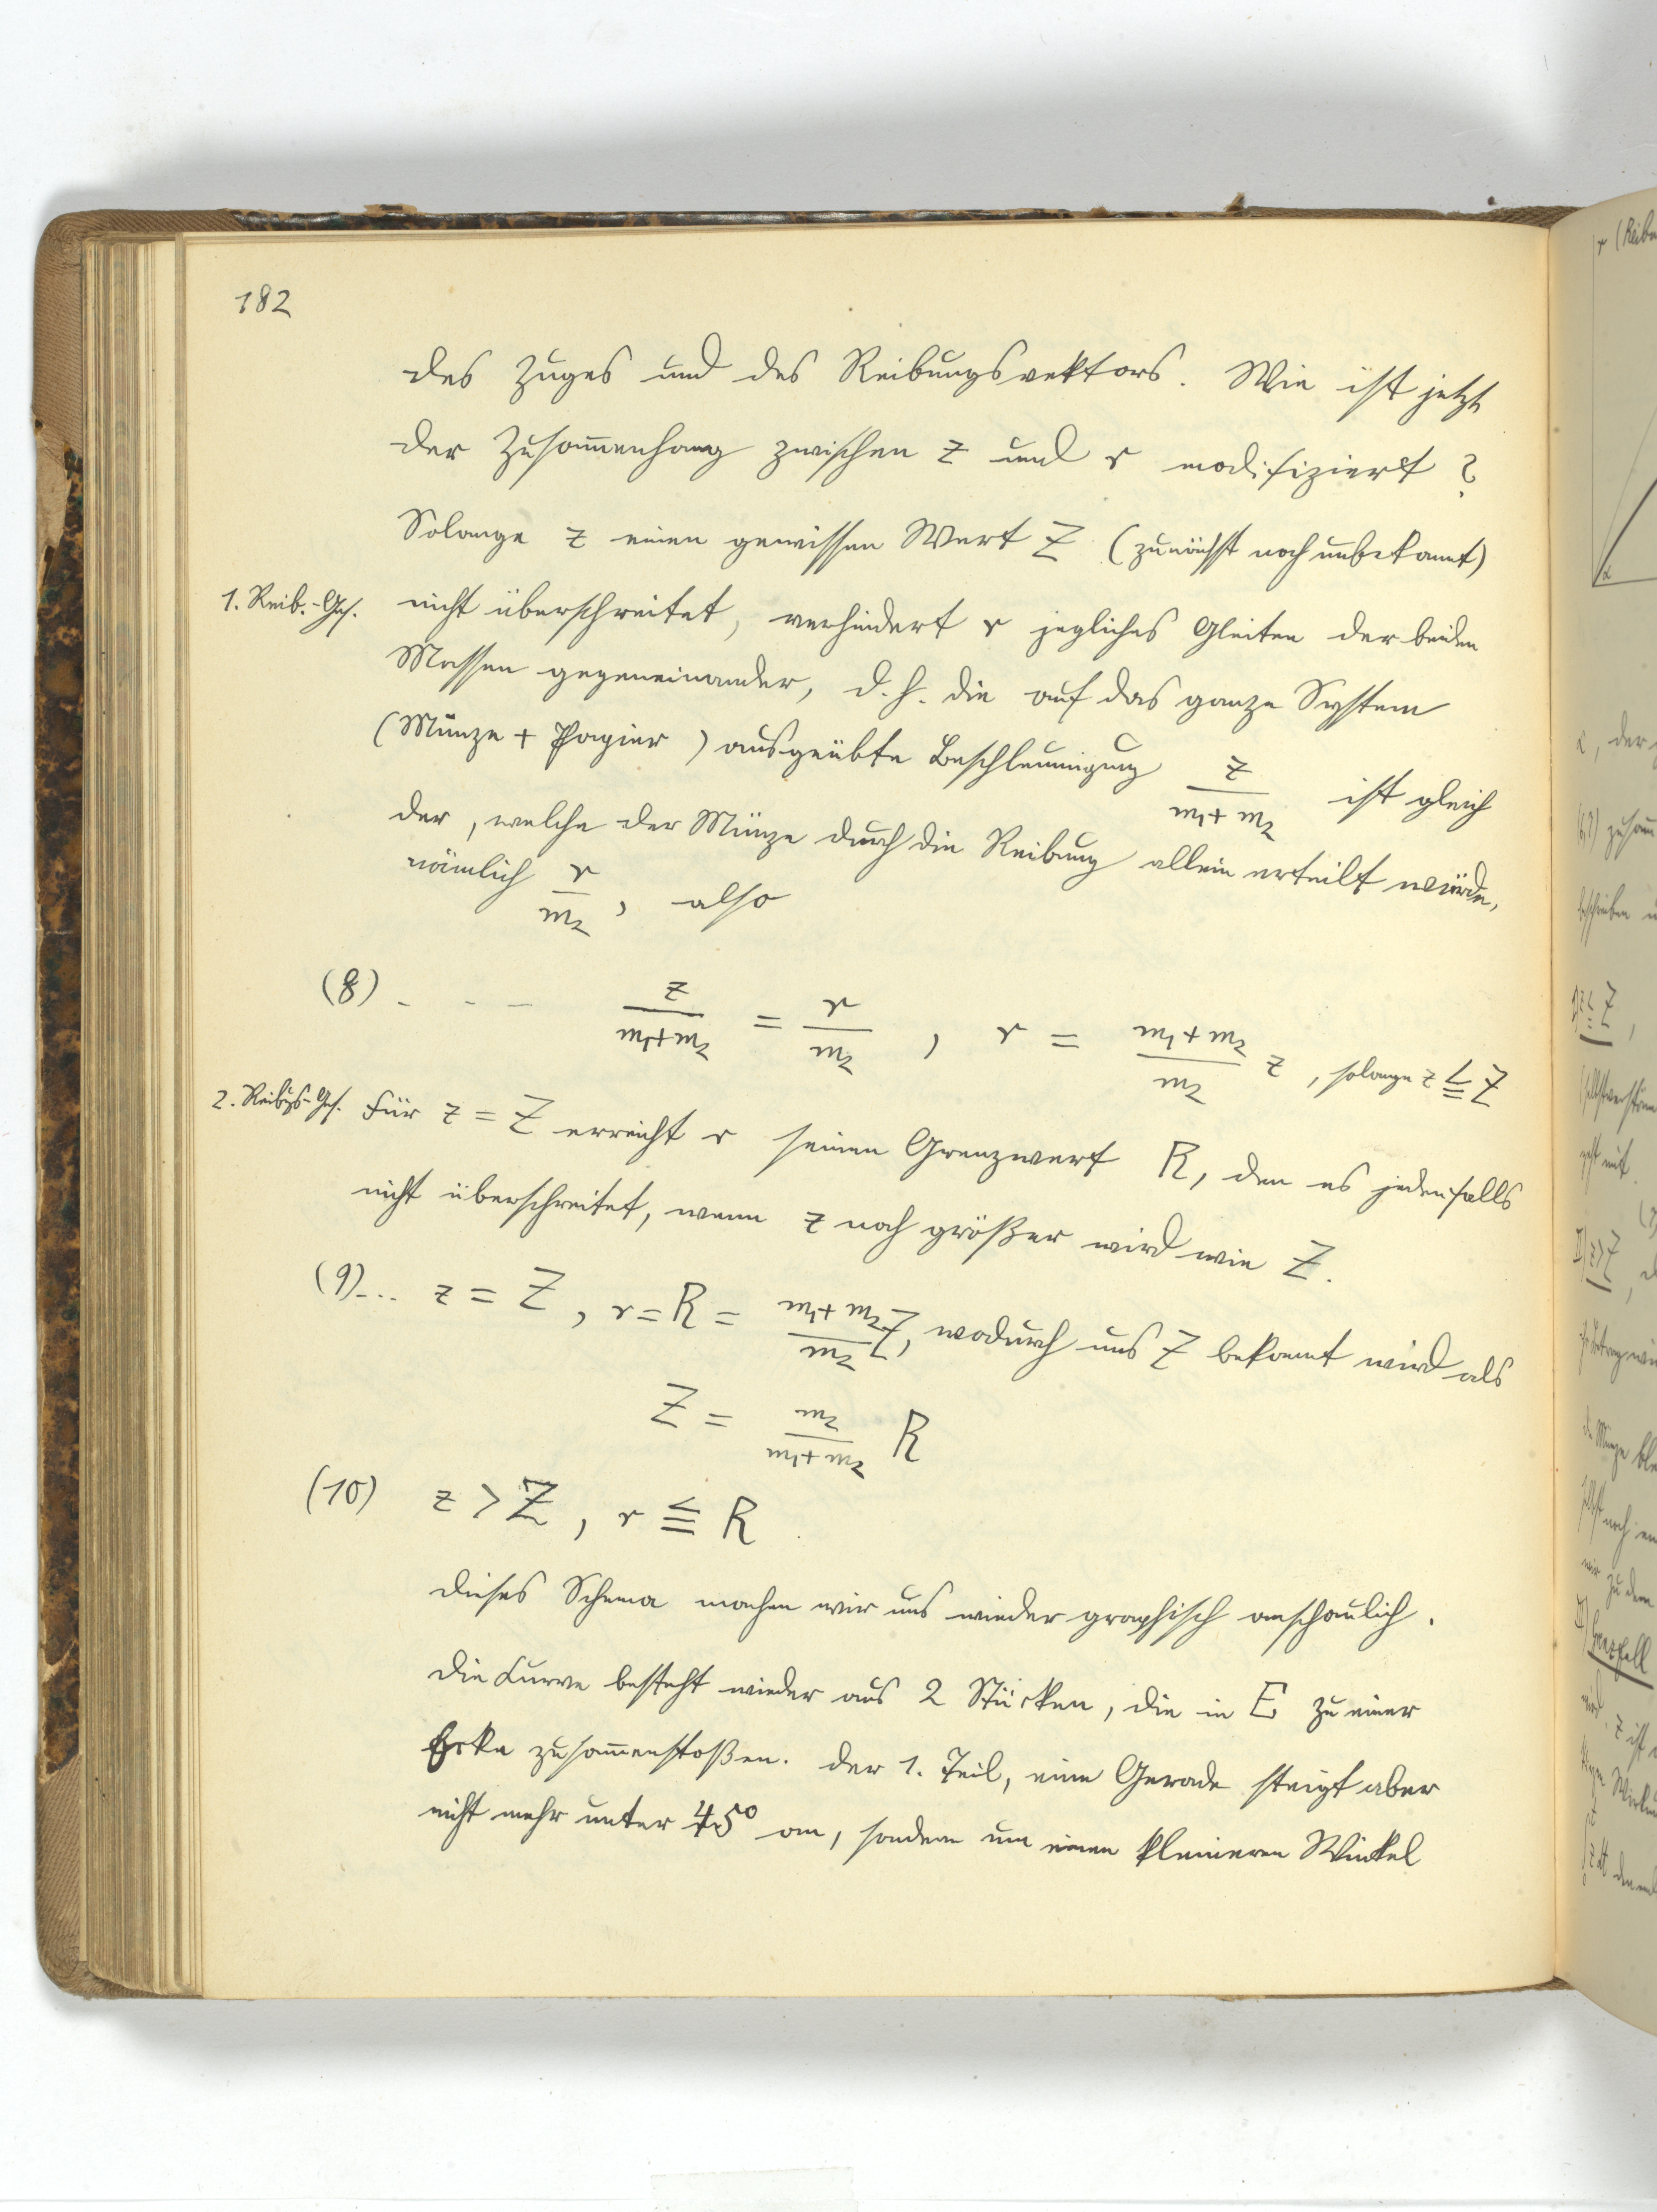 182
des Zuges und des Reibungsvektors. Wie ist jetzt
der Zusammenhang zwischen z und r modifiziert?
Solange z einen gewissen Wert Z (zunächst noch unbekannt)
1. Reib.-Ges. nicht überschreitet, verhindert r jegliches Gleiten der beiden
Massen gegeneinander, d. h. die auf das ganze System
(Münze + Papier) ausgeübte Beschleunigung z/(m₁+m₂) ist gleich
der, welche der Münze durch die Reibung allein erteilt würde,
nämlich r/m₂, also
(8) - - - z/(m₁+m₂) = r/m₂, r = (m₁+m₂)/m₂ z, solange z ≦ Z
2. Reibgs-Ges. Für z = Z erreicht r seinen Grenzwert R, den es jedenfalls
nicht überschreitet, wenn z noch größer wird wie Z.
(9)... z = Z, r = R = (m₁+m₂)/m₂ Z, wodurch uns Z bekannt wird als
Z = m₂/(m₁+m₂) R
(10) z > Z, r ≦ R
Dieses Schema machen wir uns wieder graphisch anschaulich.
Die Kurve besteht wieder aus 2 Stücken, die in E zu einer
Ecke zusammenstoßen. Der 1. Teil, eine Gerade steigt aber
nicht mehr unter 45° an, sondern um einen kleineren Winkel
r (Reib
α
, der
zusam
beschrieben
z ≦ Z,
geht mit.
II) z > Z,
die Münze
selbst noch
wir zu dem
Grenzfall
wird. z ist